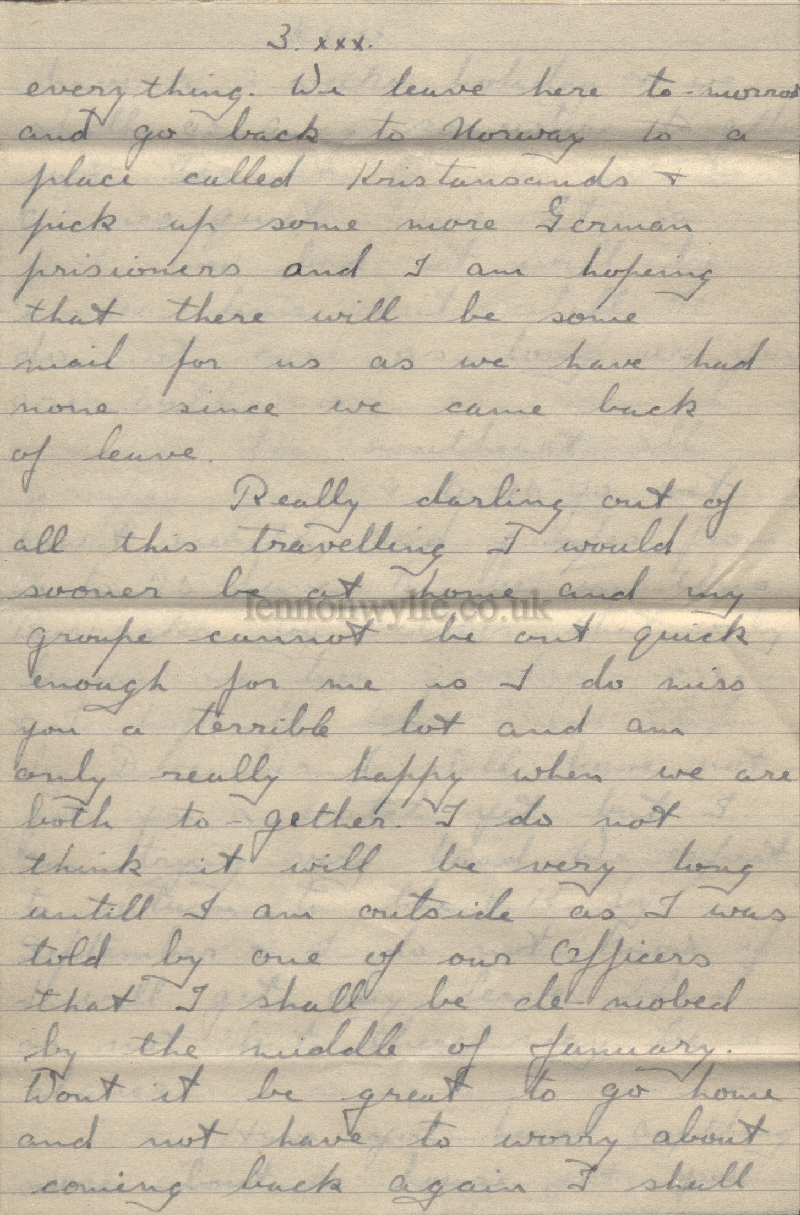 3. xxx.
everything. We leave here to-morrow
and go back to Norway to a
place called Kristansands +
pick up some more German
prisioners and I am hopeing
that there will be some
mail for us as we have had
none since we came back
of leave.
Really darling out of
all this travelling I would
sooner be at home and my
lennonwylie.co.uk
groupe cannot be out quick
enough for me as I do miss
you a terrible lot and am
only really happy when we are
both to-gether. I do not
think it will be very long
untill I am outside as I was
told by one of our Officers
that I shall be de-mobed
by the middle of January.
Wont it be great to go home
and not have to worry about
coming back again I shall